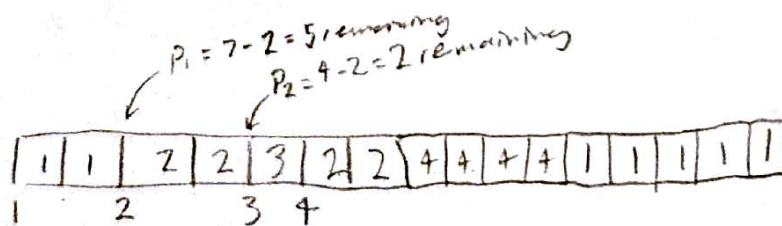 P₁ = 7 - 2 = 5 remaining
P₂ = 4 - 2 = 2 remaining
1 1 2 2 3 2 2 4 4 4 4 1 1 1 1 1
1 2 3 4